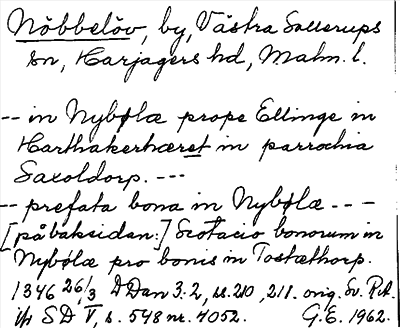 Nöbbelöv, by, Västra Sallerups
sn, Harjagers hd, Malm. l.
-- in Nybølæ prope Ellinge in
Harthakerhæret in parrochia
Saxoldorp. ---
-- prefata bona in Nybølæ ---
[på baksidan:] Scotacio bonorum in
Nybølæ pro bonis in Tostæthorp.
1346 26/3 DDan 3:2, ss. 210, 211. orig. Sv. R.A.
SD V, s. 548 nr. 4052. G.E. 1962.